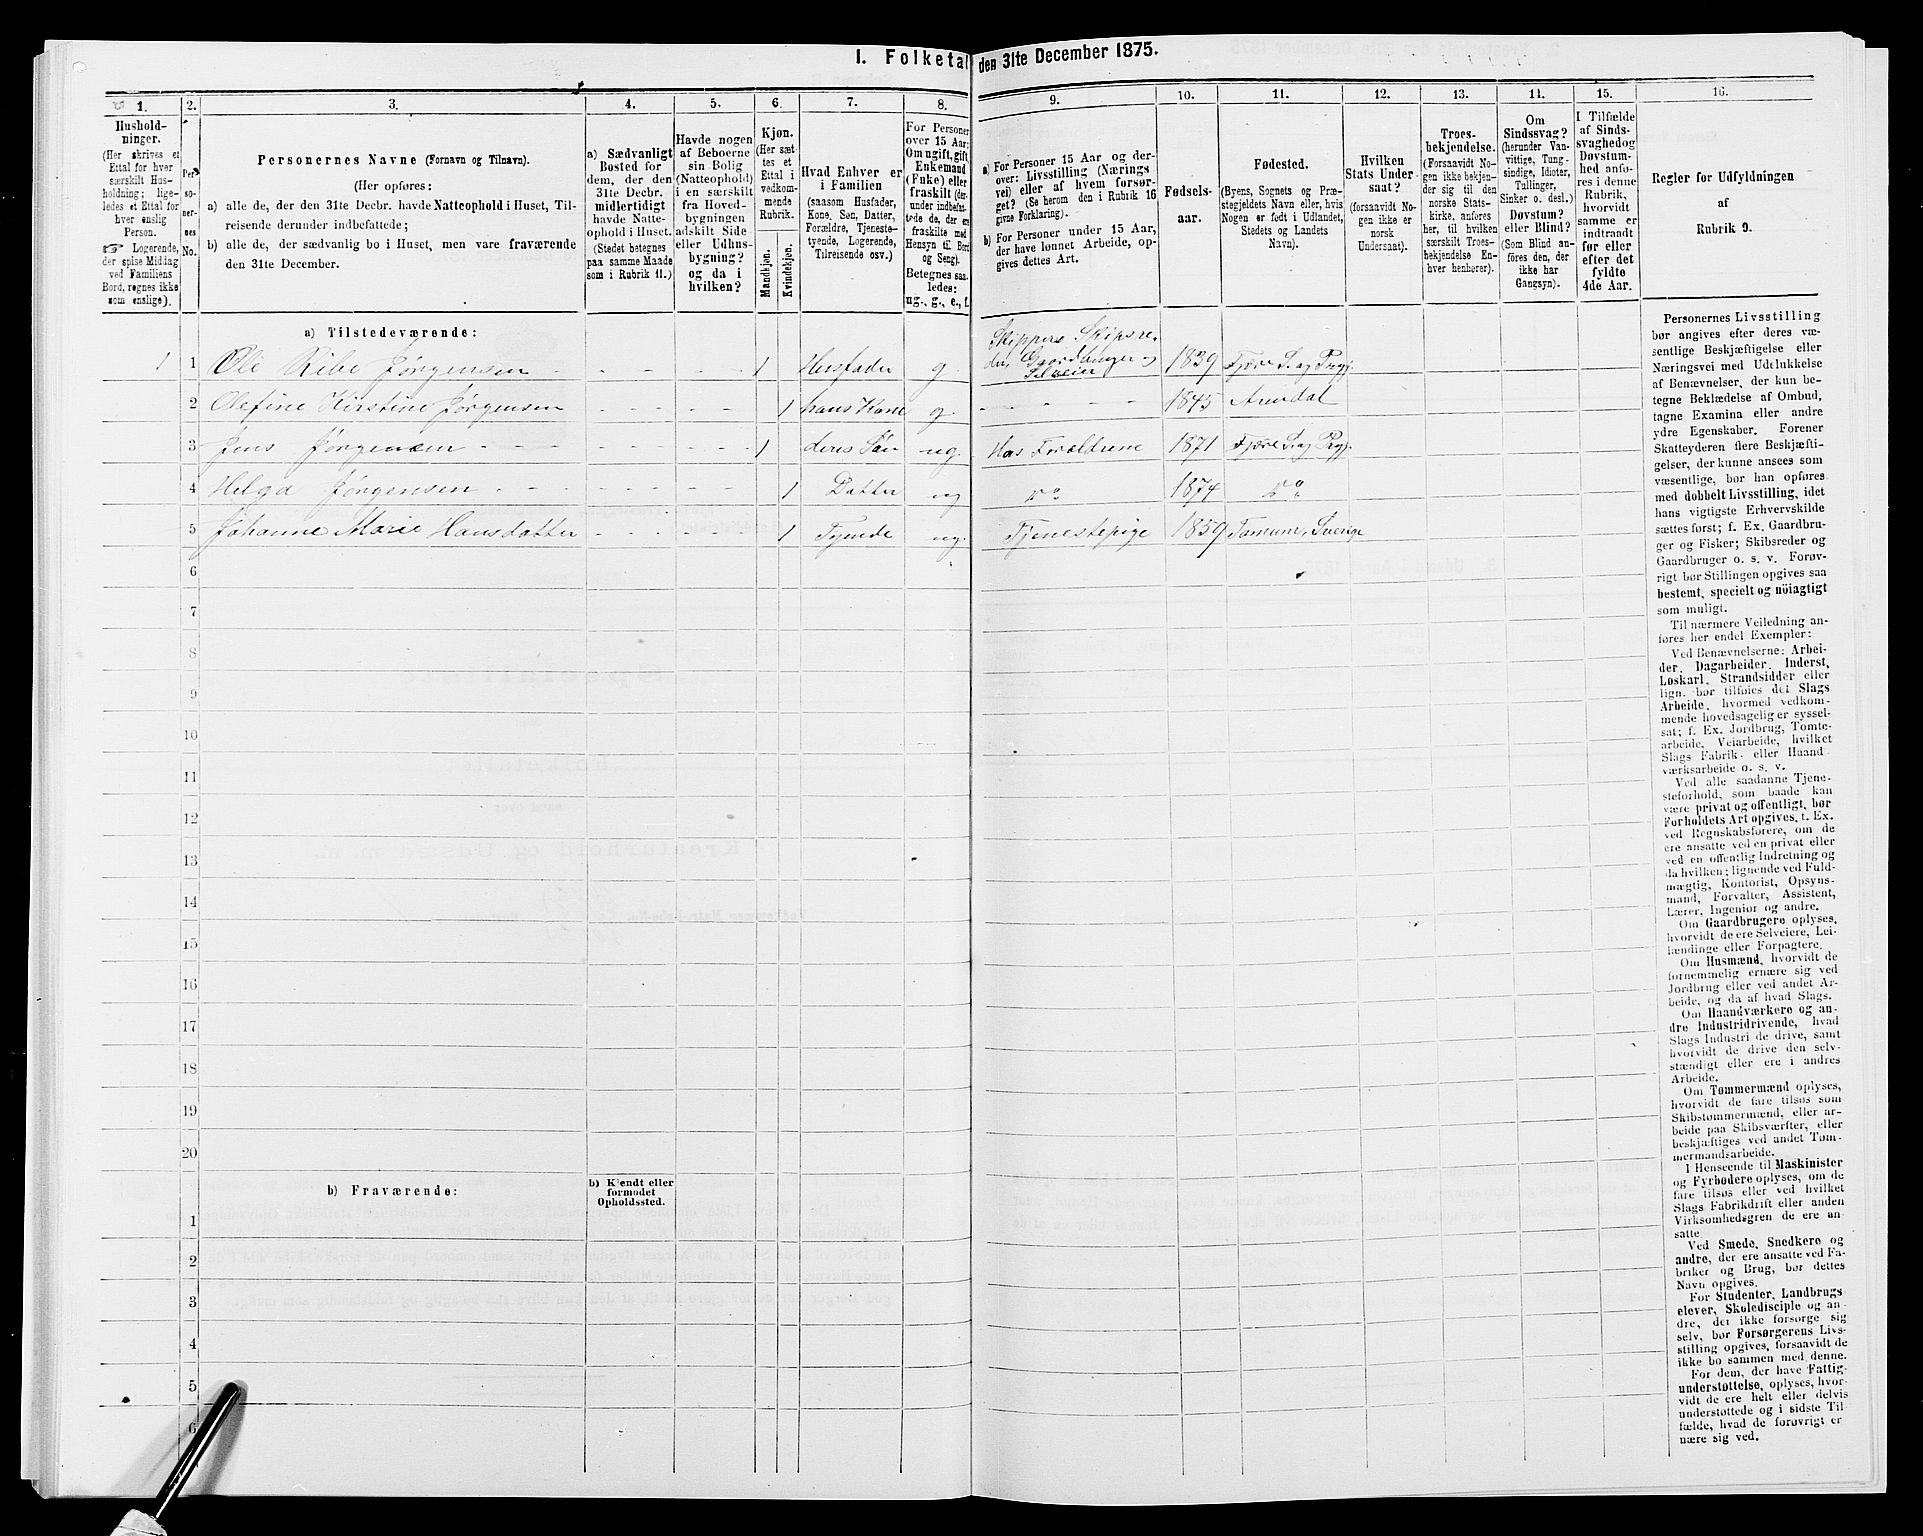 I. Folketal den 31te December 1875.
1. 2. 3. 4. 5. 6. 7. 8. 9. 10. 11. 12. 13. 14. 15. 16.
Hushold-
ninger.
(Her skrives et
Ettal for hver
særskilt Hus-
holdning; lige-
ledes et Ettal for
hver enslig
Person.
☞ Logerende,
der spise Middag
ved Familiens
Bord, regnes ikke
som enslige).
Per-
so-
ner-
nes
No.
Personernes Navne (Fornavn og Tilnavn).
(Her opføres:
a) alle de, der den 31te Decbr. havde Natteophold i Huset, Til-
reisende derunder indbefattede;
b) alle de, der sædvanlig bo i Huset, men vare fraværende
den 31te December.
a) Sædvanligt
Bosted for
dem, der den
31te Decbr.
midlertidigt
havde Natte-
ophold i Huset.
(Stedet betegnes
paa samme Maade
som i Rubrik 11.)
Havde nogen
af Beboerne
sin Bolig
(Natteophold)
i en særskilt
fra Hoved-
bygningen
adskilt Side
eller Udhus-
bygning?
og da i
hvilken?
Kjøn.
(Her sæt-
tes et
Ettal i
vedkom-
mende
Rubrik.
Mandkjøn.
Kvindekjøn.
Hvad Enhver er
i Familien
(saasom Husfader,
Kone, Søn, Datter,
Forældre, Tjeneste-
tyende, Logerende,
Tilreisende osv.)
For Personer
over 15 Aar:
Om ugift, gift,
Enkemand
(Enke) eller
fraskilt (der-
under indbefat-
tede de, der ere
fraskilte med
Hensyn til Bord
og Seng).
Betegnes saa-
ledes:
ug., g., e., f.
a) For Personer 15 Aar og der-
over: Livsstilling (Nærings
vei) eller af hvem forsør-
get? (Se herom den i Rubrik 16
givne Forklaring).
b) For Personer under 15 Aar,
der have lønnet Arbeide, op-
gives dettes Art.
Fødsels-
aar.
Fødested.
(Byens, Sognets og Præ-
stegjeldets Navn eller, hvis
Nogen er født i Udlandet,
Stedets og Landets
Navn).
Hvilken
Stats Under
saat?
(forsaavidt No-
gen ikke er
norsk
Undersaat).
Troes-
bekjendelse.
(Forsaavidt No-
gen ikke bekjen-
der sig til den
norske Stats-
kirke, anføres
her, til hvilken
særskilt Troes-
bekjendelse En-
hver henhører).
Om
Sindssvag?
(herunder Van-
vittige, Tung-
sindige, Idioter,
Tullinger,
Sinker o. desl.)
Døvstum?
eller Blind?
(Som Blind an-
føres den, der
ikke har
Gangsyn).
I Tilfælde
af Sinds-
svaghedog
Døvstum-
hed anfø-
res i denne
Rubrik,
hvorvidt
samme er
indtraadt
før eller
efter det
fyldte
4de Aar.
Regler for Udfyldningen
af
Rubrik 9.
a) Tilstedeværende:
1 1 Ole Ribe Jørgensen - - - - 1 Husfader g. Skippers Skipsre- der, Gaardbruger og Selveier 1839 Fjære S. og Prgj.
2 Olefine Kirstine Jørgensen - - - - - - 1 hans Kone g. - - - - 1845 Arendal
3 Jens Jørgensen - - - - - - 1 deres Søn ug. Hos Forældrene 1871 Fjære S. og Prgj.
4 Helga Jørgensen - - - - - - 1 Datter ug do 1874 do
5 Johanne Marie Hansdatter - - - - - - 1 Tyende ug. Tjenestepige 1859 Tanum, Sverige
6
7
8
9
10
11
12
13
14
15
16
17
18
19
20
b) Fraværende:
b) Kjendt eller
formodet
Opholdssted.
1
2
3
4
5
6
Personernes Livsstilling
bør angives efter deres væ-
sentlige Beskjæftigelse eller
Næringsvei med Udelukkelse
af Benævnelser, der kun be-
tegne Beklædelse af Ombud,
tagne Examina eller andre
ydre Egenskaber. Forener
Skatteyderen flere Beskjæfti-
gelser, der kunne ansees som
væsentlige, bør han opføres
med dobbelt Livsstilling, idet
hans vigtigste Erhvervskilde
sættes først; f. Ex. Gaardbru-
ger og Fisker; Skibsreder og
Gaardbruger o. s. v. Forøv-
rigt bør Stillingen opgives saa
bestemt, specielt og nöiagtigt
som muligt.
Til nærmere Veiledning an-
føres her endel Exempler:
Ved Benævnelserne: Arbei-
der, Dagarbeider, Inderst,
Løskarl, Strandsidder eller
lign. bør tilføies det Slags
Arbeide, hvormed vedkom-
mende hovedsagelig er syssel-
sat; f. Ex. Jordbrug, Tomte-
arbeide, Veiarbeide, hvilket
Slags Fabrik- eller Haand
værksarbeide o. s. v.
Ved alle saadanne Tjene-
steforhold, som baade kan
være privat og offentligt, bør
Forholdets Art opgives, t. Ex.
ved Regnskabsførere, om de
ere ansatte ved en privat eller
ved en offentlig Indretning og
da hvilken; lignende ved Fuld-
mægtig, Kontorist, Opsyns-
mand, Forvalter, Assistent,
Lærer, Ingeniør og andre.
Om Gaardbrugere oplyses,
hvorvidt de ere Selveiere, Lei-
lændinge eller Forpagtere.
Om Husmænd, hvorvidt de
fornemmelig ernære sig ved
Jordbrug eller ved andet Ar-
beide, og da af hvad Slags.
Om Haandværkere og an-
dre Industridrivende, hvad
Slags Industri de drive, samt
hvorvidt de drive den selv-
stændigt eller ere i andres
Arbeide.
Om Tømmermænd oplyses,
hvorvidt de fare tilsøs som
Skibstømmermænd, eller ar-
beide paa Skibsværfter, eller
beskjæftiges ved andet Tøm-
mermandsarbeide.
I Henseende til Maskinister
og Fyrbødere oplyses, om de
fare tilsøs eller ved hvilket
Slags Fabrikdrift eller anden
Virksomhedsgren de ere an-
satte.
Ved Smede, Snedkere og
andre, der ere ansatte ved Fa-
briker og Brug, bør dettes
Navn opgives.
For Studenter, Landbrugs
elever, Skoledisciple og an-
dre, der ikke forsørge sig
selv, bør Forsørgerens Livs-
stilling opgives, forsaavidt de
ikke bo sammen med denne.
For dem, der have Fattig-
understøttelse, oplyses, hvor-
vidt de ere helt eller delvis
understøttede og i sidste Til-
fælde, hvad de forøvrigt er
nære sig ved.